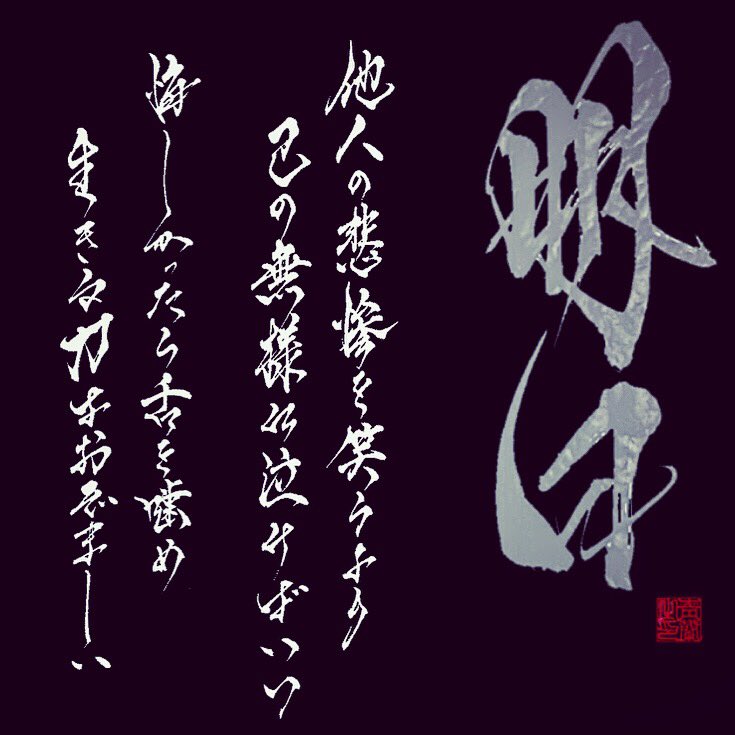 明日
他人の悲惨を笑うより
己の無様に泣けばいい
悔しかったら舌を噛め
生きる力がおぞましい